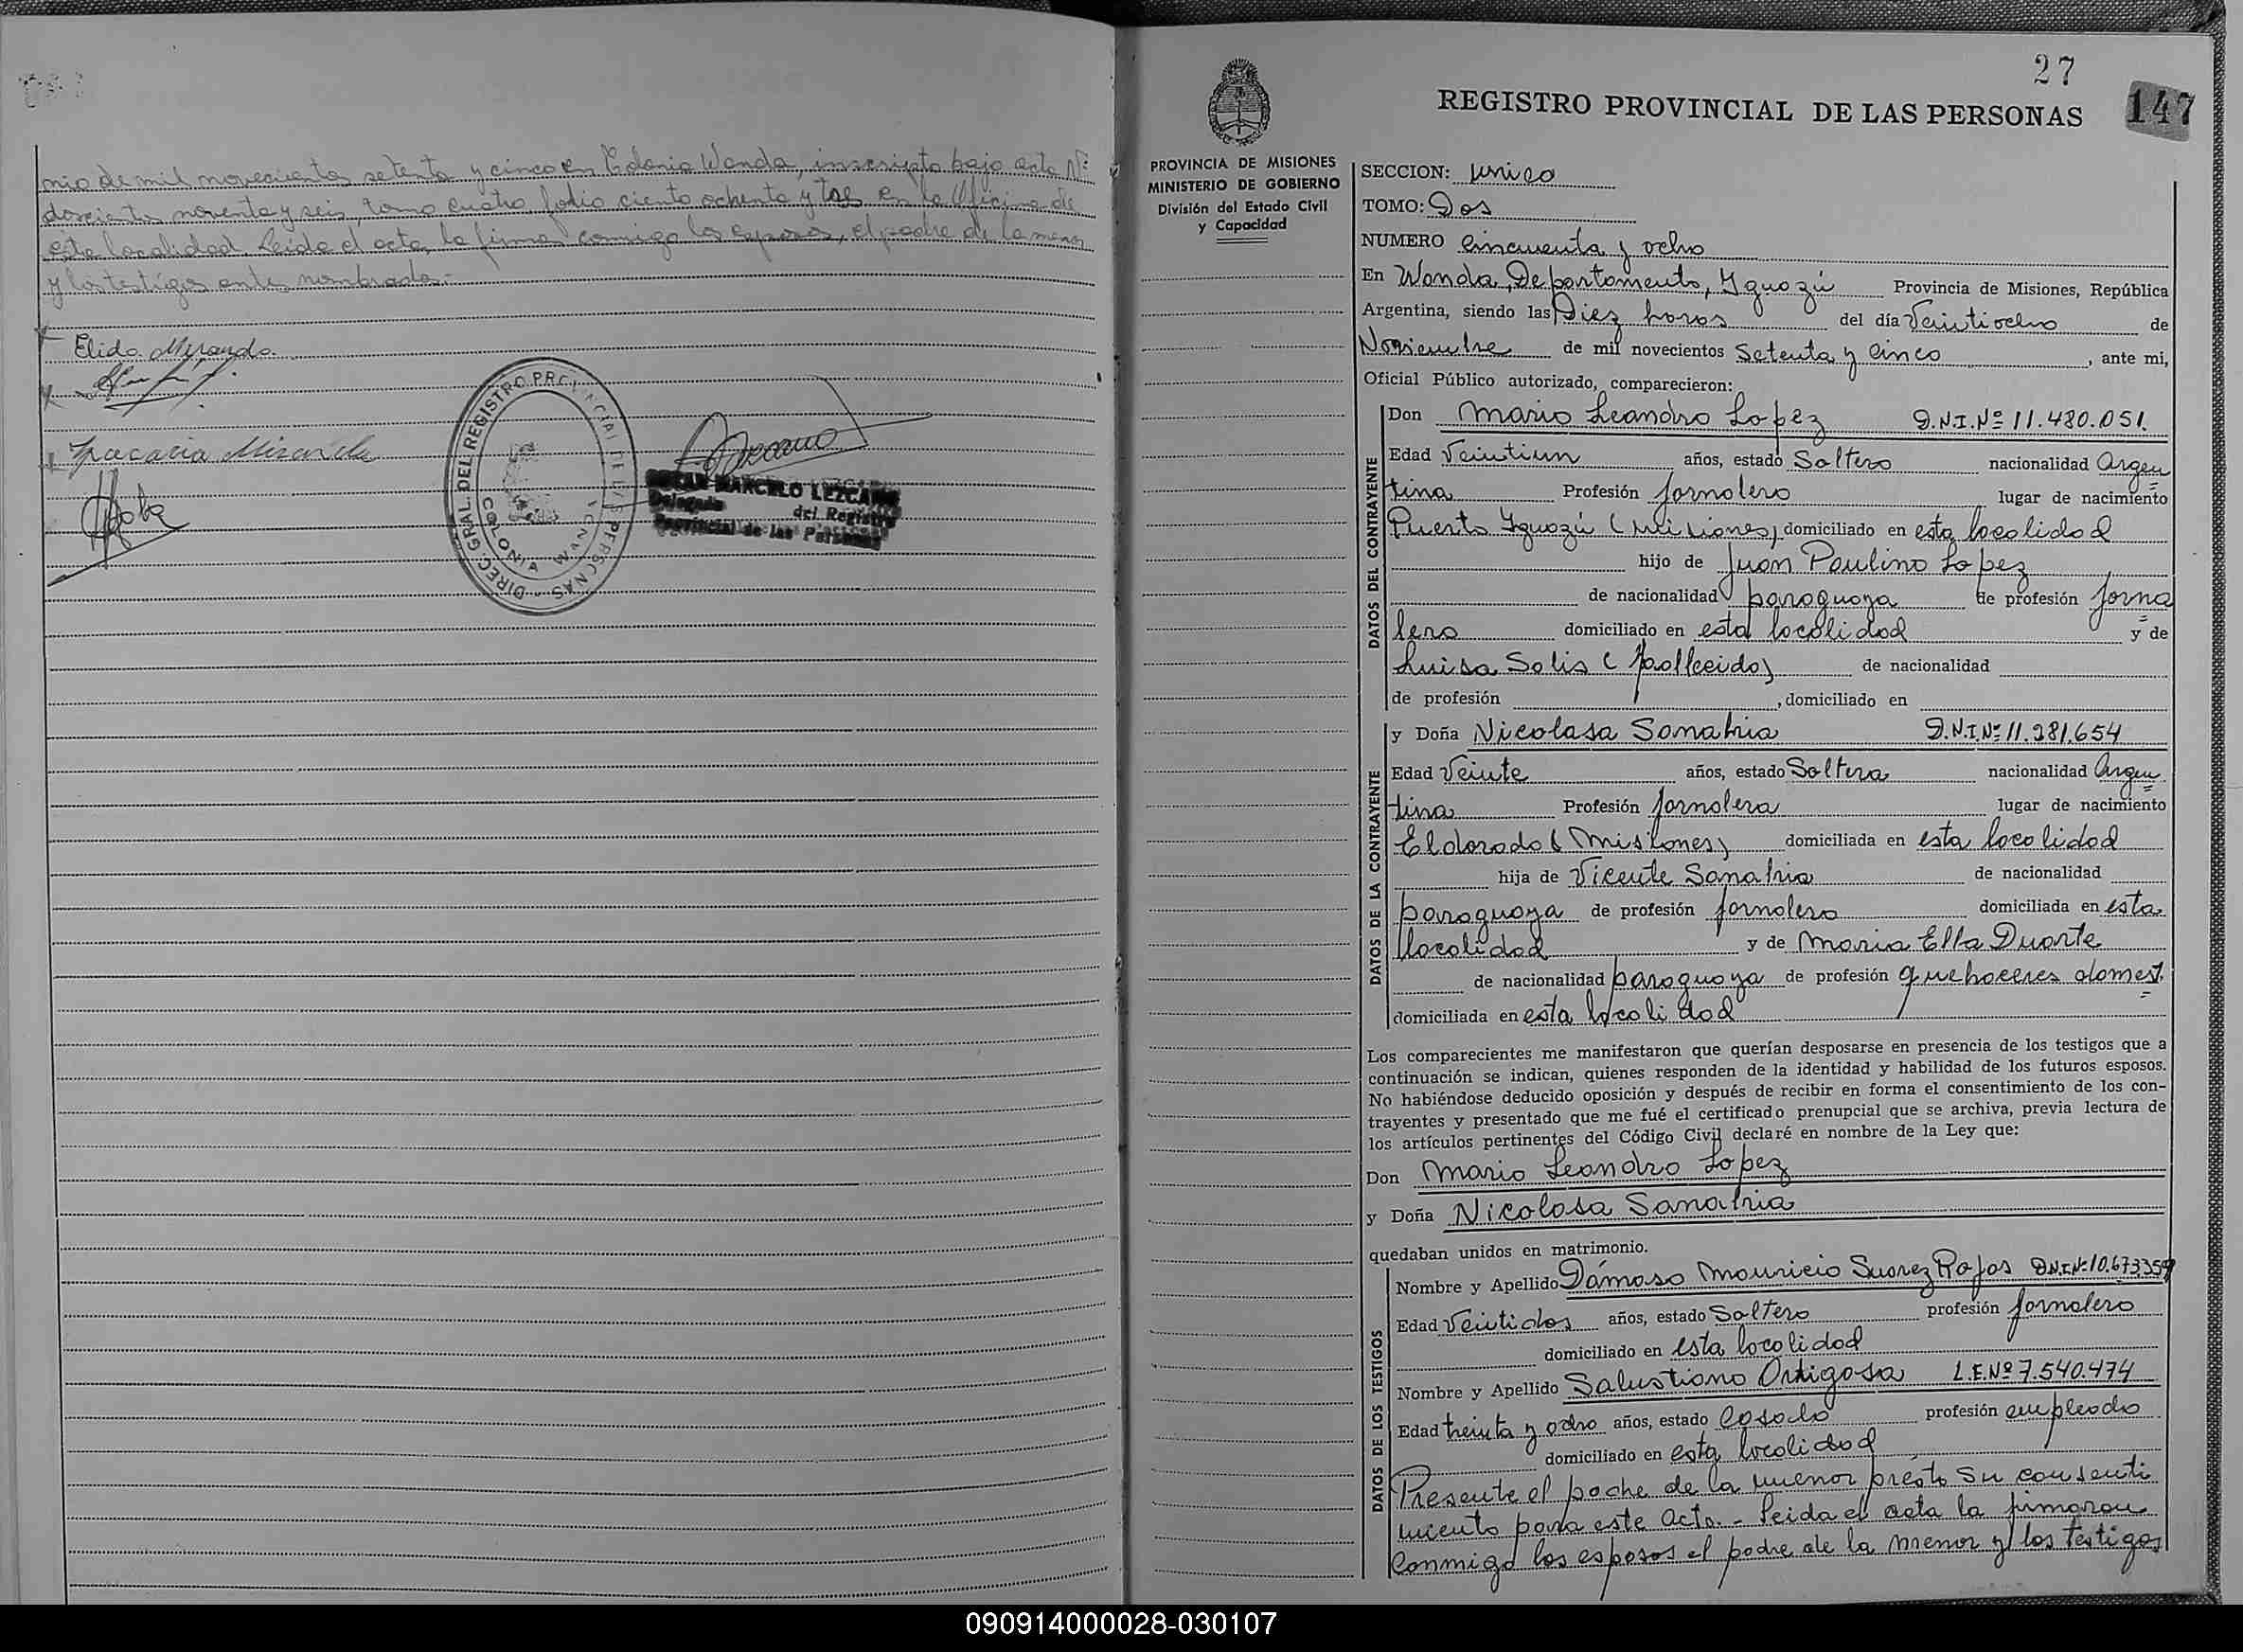 nio de mil novecientos setenta y cinco en Colonia Wanda, inscripto bajo acta Nº:
doscientos noventa y seis, tomo cuatro, folio ciento ochenta y tres en la Oficina de
esta localidad. Leida el acta, la firman conmigo los esposos, el padre de la menor
y los testigos antes nombrados.-
Elida Miranda.
Miranda
DIREC. GRAL. DEL REGISTRO PROVINCIAL DE LAS PERSONAS
COLONIA WANDA
MARCELO LEZCANO
Delegado del Registro
Provincial de las Personas
27
147
REGISTRO PROVINCIAL DE LAS PERSONAS
PROVINCIA DE MISIONES
MINISTERIO DE GOBIERNO
División del Estado Civil
y Capacidad
SECCION: unica
TOMO: Dos
NUMERO cincuenta y ocho
En Wanda, Departamento, Yguazú Provincia de Misiones, República
Argentina, siendo las Diez horas del día Veintiocho de
Noviembre de mil novecientos Setenta y cinco, ante mi,
Oficial Público autorizado, comparecieron:
DATOS DEL CONTRAYENTE
Don Mario Leandro Lopez D.N.I.Nº 11.480.051.
Edad Veintiun años, estado Soltero nacionalidad Argen
tina Profesión Jornalero lugar de nacimiento
Puerto Yguazú (Misiones) domiciliado en esta localidad
hijo de Juan Paulino Lopez
de nacionalidad paraguaya de profesión Jorna
lero domiciliado en esta localidad y de
Luisa Solis (Fallecida) de nacionalidad
de profesión , domiciliado en
DATOS DE LA CONTRAYENTE
y Doña Nicolasa Sanabria D.N.I.Nº 11.281.654
Edad Veinte años, estado Soltera nacionalidad Argen
tina Profesión Jornalera lugar de nacimiento
Eldorado (Misiones) domiciliada en esta localidad
hija de Vicente Sanabria de nacionalidad
paraguaya de profesión jornalero domiciliada en esta
localidad y de Maria Ella Duarte
de nacionalidad paraguaya de profesión quehaceres domest.
domiciliada en esta localidad
Los comparecientes me manifestaron que querían desposarse en presencia de los testigos que a
continuación se indican, quienes responden de la identidad y habilidad de los futuros esposos.
No habiéndose deducido oposición y después de recibir en forma el consentimiento de los con-
trayentes y presentado que me fué el certificado prenupcial que se archiva, previa lectura de
los artículos pertinentes del Código Civil declaré en nombre de la Ley que:
Don Mario Leandro Lopez
y Doña Nicolasa Sanabria
quedaban unidos en matrimonio.
DATOS DE LOS TESTIGOS
Nombre y Apellido Dámaso Mauricio Suarez Rojas D.N.I.Nº 10.673.359
Edad Veintidos años, estado Soltero profesión jornalero
domiciliado en esta localidad
Nombre y Apellido Salustiano Ortigosa L.E.Nº 7.540.474
Edad treinta y ocho años, estado Casado profesión empleado
domiciliado en esta localidad
Presente el padre de la menor prestó su consenti
miento para este acto.- Leida el acta la firmaron
Conmigo los esposos el padre de la menor y los testigos
090914000028-030107